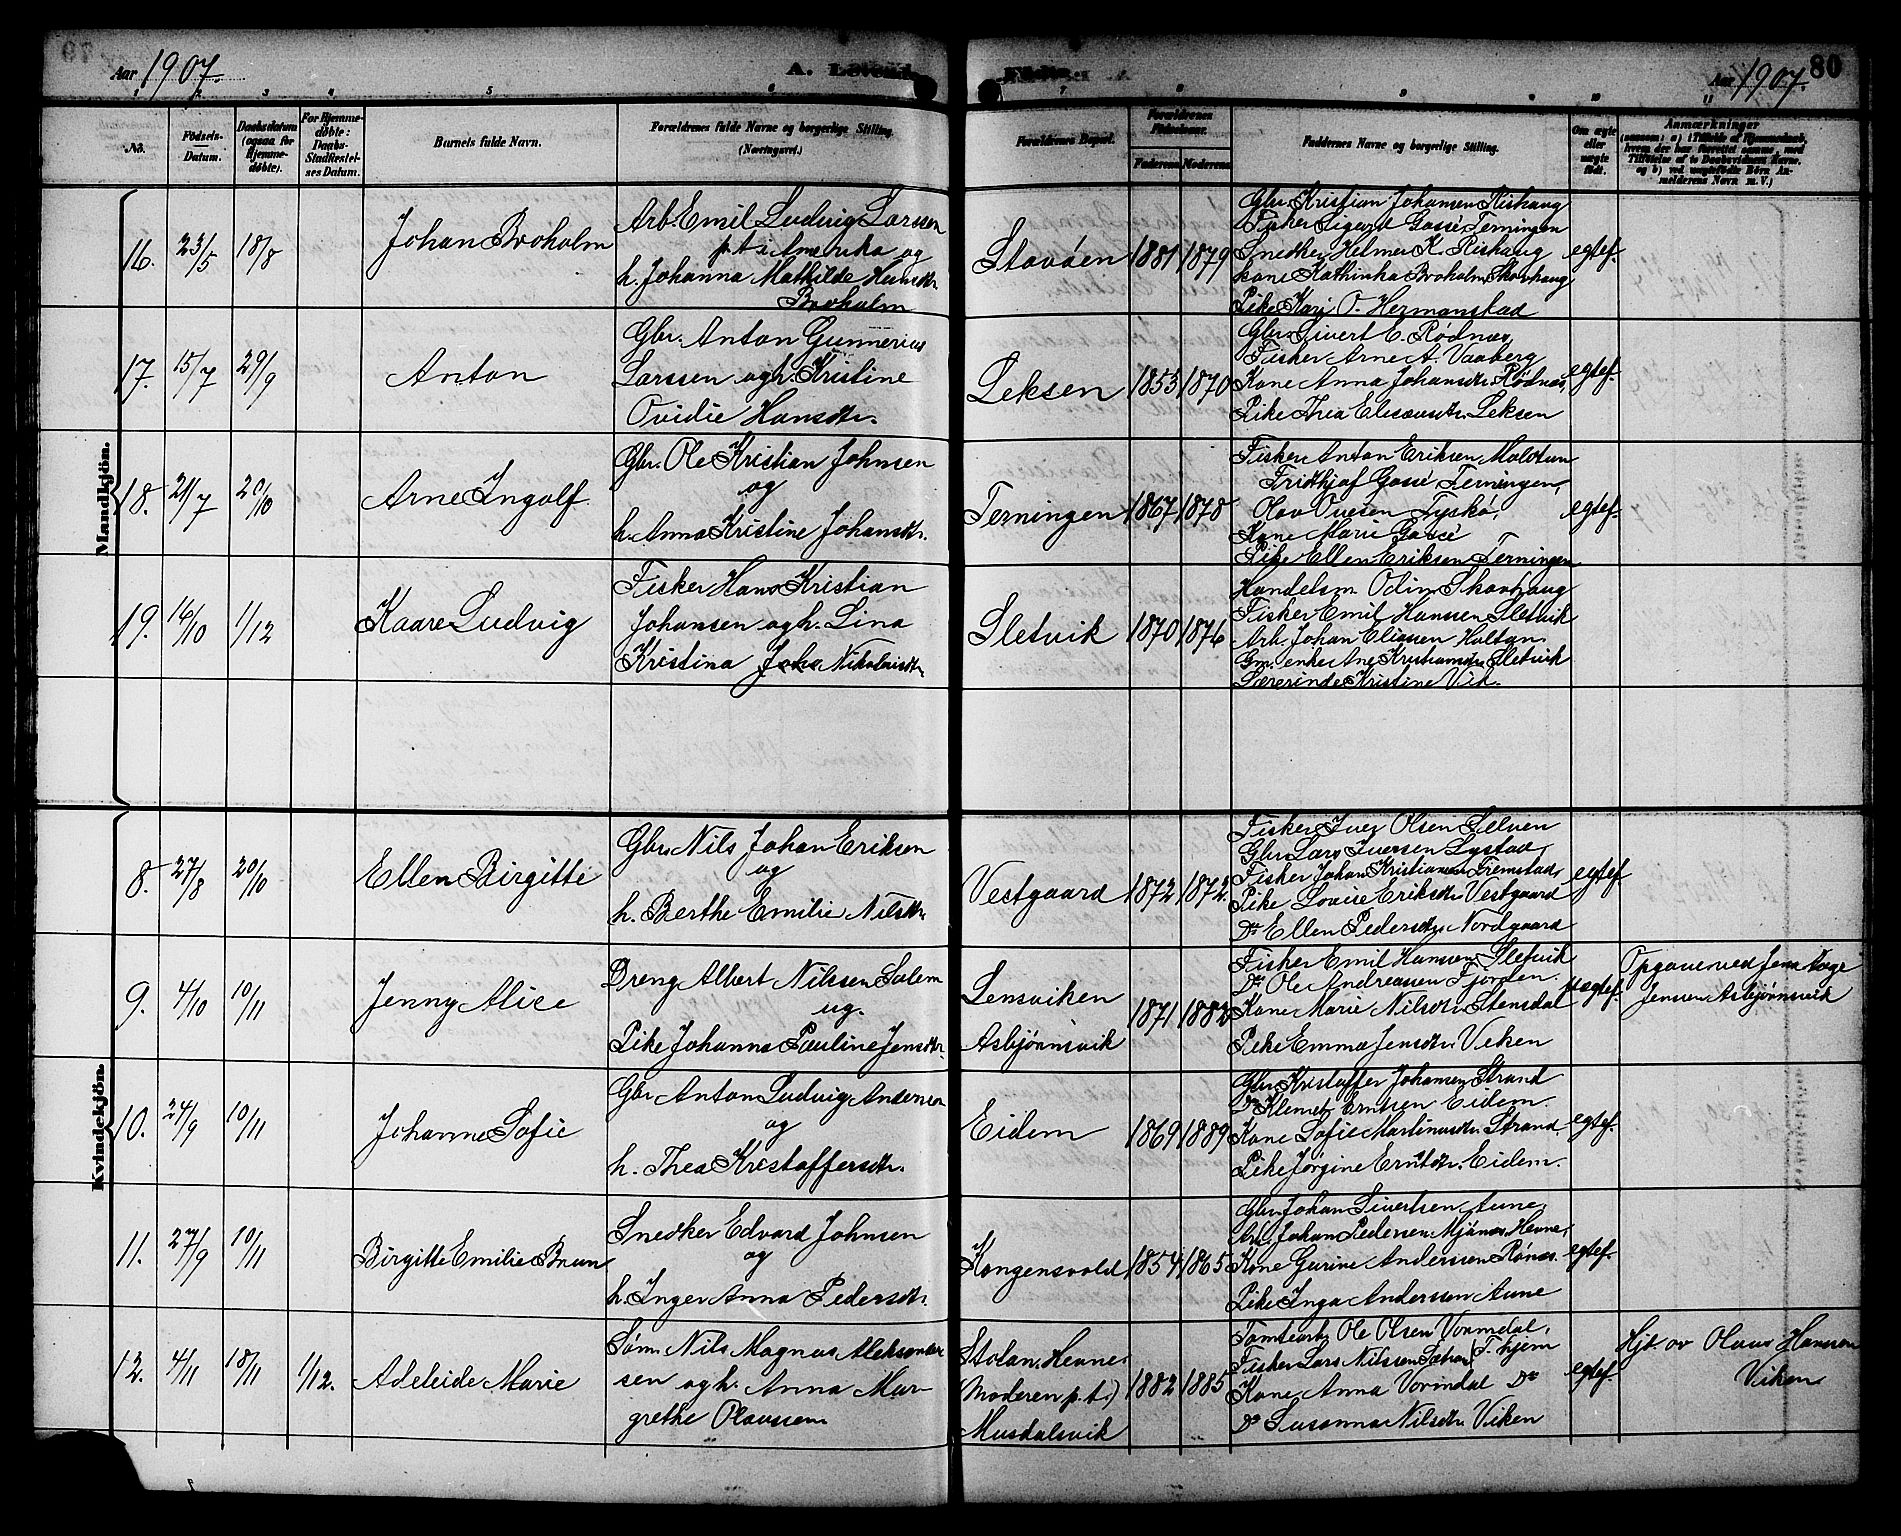 Aar 1907. A. Levende Fødte. Aar 1907. 80
1 2 3 4 5 6 7 8 9 10 11
No. Fødsels-Datum. Daabsdatum (ogsaa for Hjemmedøbte). For Hjemmedøbte: Daabs-Stadfæstelses Datum. Barnets fulde Navn. Forældrenes fulde Navne og borgerlige Stilling. (Næringsvei.) Forældrenes Bopæl. Forældrenes Fødselsaar. Faderens Moderens Faddernes Navne og borgerlige Stilling. Om ægte eller uægte født. Anmærkninger
Mandkjön.
16. 23/5 18/8 Johan Broholm
Arb. Emil Ludvig Larssen
p.t. i Amerika og
h. Johanna Mathilde
Broholm
Stavöen 1881 1879
Gbr. Kristian Johansen Rishaug
Fisker Sigurd Gassé Terningen
Snedker Helmer K. Rishaug
Kone Kathinka Broholm, Skovhaug
Pike Kari O. Hermanstad
egtef.
17. 15/7 29/9 Anton
Gbr. Anton Gunnerius
Larssen og h. Kristine
Ovidie Hansdtr.
Leksen 1853 1870
Gbr. Sivert E. Rødnes,
Fisker Arne A. Vaaberg
Kone Anna Johansdtr. Rødnes,
Pike Thea Eliseusdtr. Leksen
egtef.
18. 21/7 20/10 Arne Ingolf.
Gbr. Ole Kristian Johnsen
og
h. Anna Kristine Johansdtr.
Terningen 1867 1878
Fisker Anton Eriksen Moldtun
Fridthjof Gassé Terningen,
Olav Ovesen Tyskø,
Kone Marie Gassé
Pike Ellen Eriksen Terningen
egtef.
19. 16/10 1/12 Kaare Ludvig
Fisker Hans Kristian
Johansen og h. Lina
Kristina Nikolaisdtr.
Sletvik 1870 1876
Handelsm. Odin Skovhaug
Fisker Emil Hansen Sletvik
Arb. Johan Eliassen Holtan
Gm. enke Ane Kristiansdtr. Sletvik
Lærerinde Kristine Vik.
Kvindekjön.
8. 27/8 20/10 Ellen Birgitte
Gbr. Nils Johan Eriksen
og
h. Berthe Emilie Nilsdtr.
Vestgaard 1872 1872.
Fisker Iver Olsen Selven
Gbr. Lars Iversen Lystad,
Fisker Johan Kristiansen Fremstad,
Pike Lovise Eriksdtr. Vestgaard
Do Ellen Pedersdtr. Nordgaard
egtef.
9. 4/10 10/11 Jenny Alice
Dreng Albert Nilssen Solem
og.
Pike Johanna Pauline Jensdtr.
Lensviken
Asbjørnsvik
1871 1882
Fisker Emil Hansen Sletvik
Do Ole Andreassen Fjorden.
Kone Marie Nilsdtr. Stensdal
Pike Emma Jensdtr. Viken
uegtef.
Opgave ved Jens Aage
Jensen Asbjørnsvik
10. 24/9 10/11 Johanne Sofie
Gbr. Anton Ludvig Andersen
og
h. Thea Kristoffersdtr.
Eidem 1869 1889
Gbr. Kristoffer Johansen Strand
Do Klemet Erntsen Eidem.
Kone Sofie Martinusdtr. Strand,
Pike Jørgine Erntsdtr. Eidem.
egtef.
11. 27/9 10/11 Birgitte Emilie Brun
Snedker Edvard Johnsen
og
h. Inger Anna Pedersdtr.
Kongensvold 1854 1865
Gbr. Johan Sivertsen Aune,
Arb. Johan Pedersen Mjönes, Hevne,
Kone Gurine Anderssen Rønes.
Pike Inga Anderssen Aune
egtef.
12. 4/11 18/11 1/12. Adeleide Marie
Søm. Nils Magnus Aleksander
sen og h. Anna Mar
grethe Olaussen
Stolan, Hevne.
(Moderen p.t.)
Musdalsvik
1882 1885
Tomtearb. Ole Olsen Vormdal,
Fisker Lars Nilssen T. hjem
Kone Anna Vormdal Do
Do Susanna Nilsdtr. Viken
egtef.
Hjd. av Olaus Hanssen
Viken